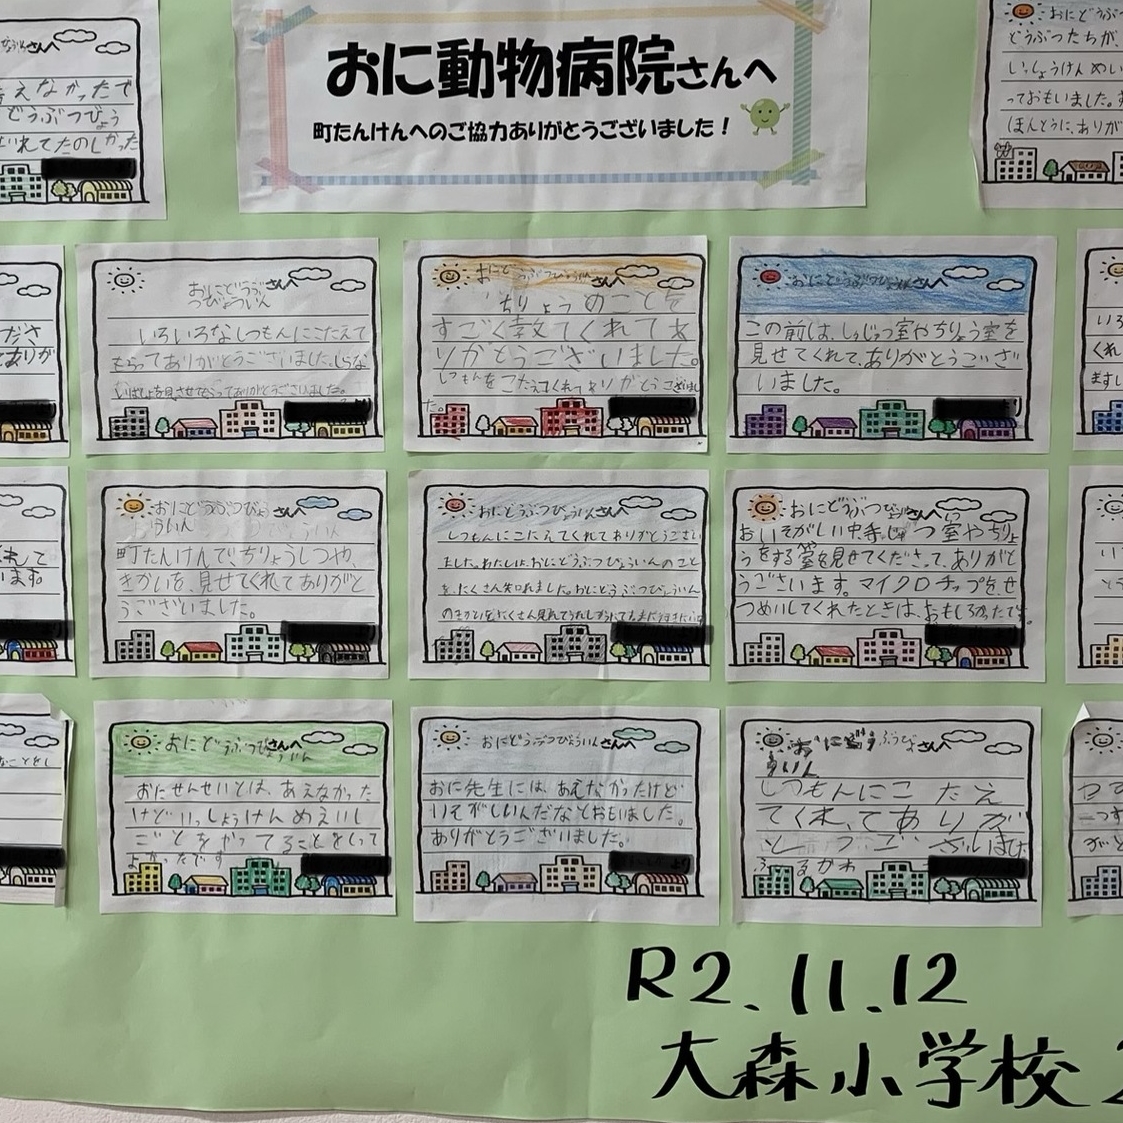 おに動物病院さんへ
町たんけんへのご協力ありがとうございました!
さんへ
えなかったで
どうぶつびょう
いれてたのしかった
おにどうぶ
どうぶつたちが、
いっしょうけんめい
っておもいました。
ほんとうに、ありが
ださ
ありが
おにどうぶ
つびょういん さんへ
いろいろなしつもんにこたえて
もらってありがとうございました。
を見させてもらってありがとうございました。
おにどうぶつびょういん さんへ
ちりょうのことを
すごく教えてくれてあ
りがとうございました。
しつもんをこたえてくれてありがとうございまし
た。
おにどうぶつびょういん さんへ
この前は、しゅじゅつ室やちりょう室を
見せてくれて、ありがとうござ
いました。
いろ
くれ
ますし
れて
います。
おにどうぶつびょ
ういん
町たんけんで、ちりょうしつや、
きかいを、見せてくれてありがと
うございました。
おにどうぶつびょういん さんへ
しつもんにこたえてくれてありがとうござい
ました。わたしは、おにどうぶつびょういんのこと
を、たくさん知れました。おにどうぶつびょういん
おにどうぶつびょういん さんへ
おいそがしい中手じゅつ室やちりょ
うをする室を見せてくださって、ありがと
うございます。マイクロチップをせ
つめいしてくれたときは、おもしろかったです。
なことをし
おにどうぶつびょういん さんへ
おにせんせいとは、あえなかった
けどいっしょうけんめいし
ごとをやってることをしって
よかったです
おにどうぶつびょういん さんへ
おに先生には、あえなかったけど
いそがしいんだなとおもいました。
ありがとうございました。
より
おにどうぶつびょ さんへ
ういん
しつもんにこたえ
てくれてありが
とうございました
ふるかわ
R2.11.12
大森小学校